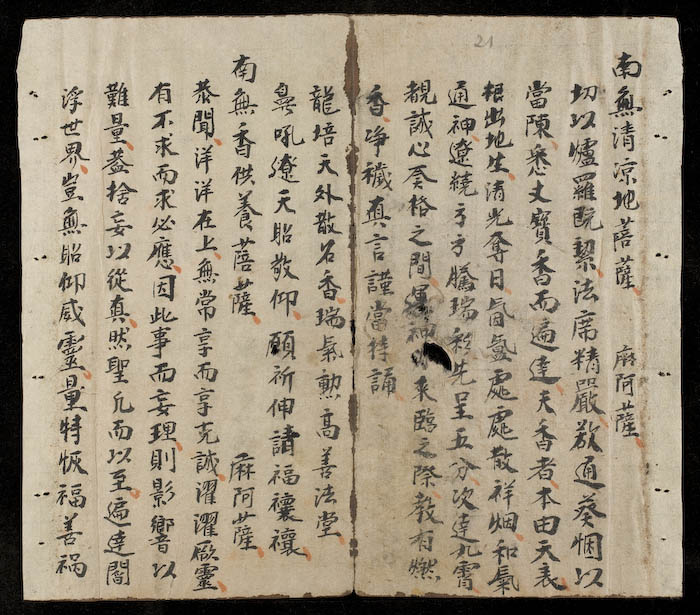 21
南無清凉地菩薩 麻阿薩
切以爐羅既絜法席精嚴欲通葵悃以
當陳悉丈寳香而遍達夫香者本由天表
根出地生清光奪日氤氳處處散祥烟和氣
通神遼繞亏亏騰瑞彩先呈五分次達九霄
覩誠心奏格之間神來臨之際教有燃
香净穢真言謹當持誦
龍培天外散名香瑞氣勲髙善法堂
鼻吼遼天昭敬仰願祈伸請福禳禳
南無香供養菩薩 麻阿薩
恭聞洋洋在上無常享而享克誠濯濯厥靈
有不求而求必應因此事而妄理則影響以
難量蓋捨妄以從真然聖凢而以至遍達閻
浮世界豈無昭仰威靈量特恢福善禍